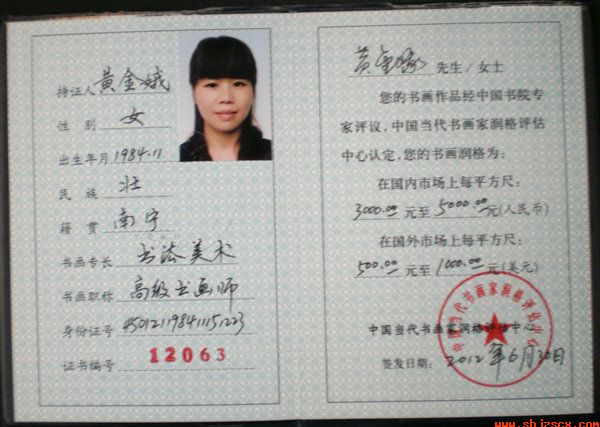 持证人 黄金娥
性 别 女
出生年月 1984.11
民 族 壮
籍 贯 南宁
书画专长 书法美术
书画职称 高级书画师
身份证号 450121198411151223
证书编号 12063
黄金娥 先生/女士
您的书画作品经中国书院专
家评议,中国当代书画家润格评估
中心认定,您的书画润格为:
在国内市场上每平方尺:
3000.00 元至 5000.00 元(人民币)
在国外市场上每平方尺:
500.00 元至 1000.00 元(美元)
中国当代书画家润格评估中心
中国当代书画家润格评估中心
签发日期: 2012年6月30日
www.shjzscx.com